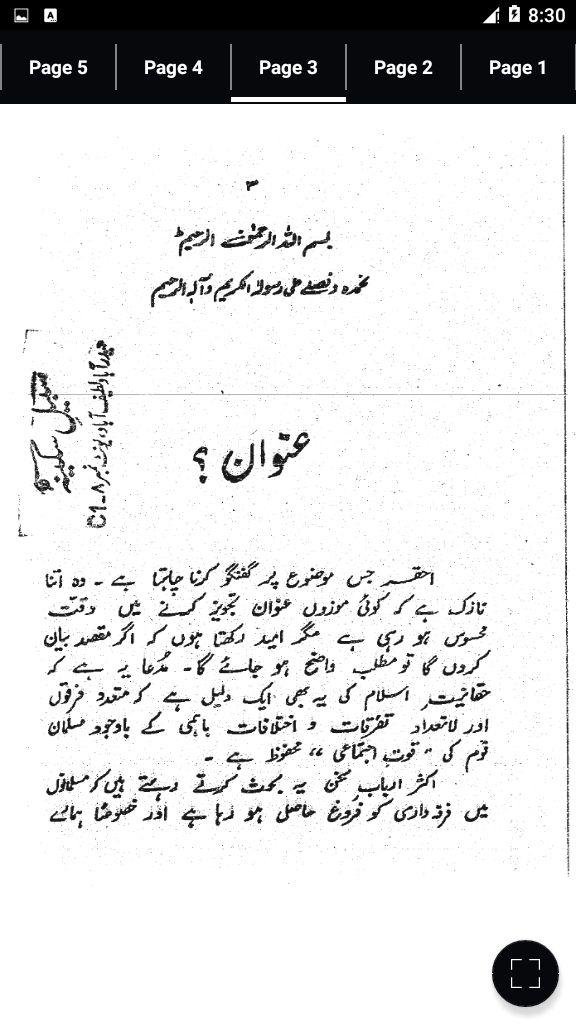 8:30
Page 5
Page 4
Page 3
Page 2
Page 1
۳
بسم اللہ الرحمٰن الرحیم ط
نحمدہ و نصلے علی رسولہ الکریم و آلہ الرحیم
سبیل سکینہ
حیدرآباد لطیف آباد، یونٹ نمبر ۸-C1
عنوان ؟
احقر جس موضوع پر گفتگو کرنا چاہتا ہے ۔ وہ اتنا
نازک ہے کہ کوئی موزوں عنوان تجویز کرنے میں دقت
محسوس ہو رہی ہے مگر امید رکھتا ہوں کہ اگر مقصد بیان
کروں گا تو مطلب واضح ہو جائے گا۔ مدُعا یہ ہے کہ
حقانیت اسلام کی یہ بھی ایک دلیل ہے کہ متعدد فرقوں
اور لاتعداد تفرقات و اختلافات باہمی کے باوجود مسلمان
قوم کی "قوتِ اجتماعی" محفوظ ہے ۔
اکثر اربابِ سخن یہ بحث کرتے رہتے ہیں کہ مسلمانوں
میں فرقہ داری کو فروغ حاصل ہو رہا ہے اور خصوصًا ہمارے